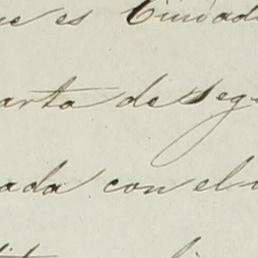 ue es Ciudad
arta de seg
ada con el